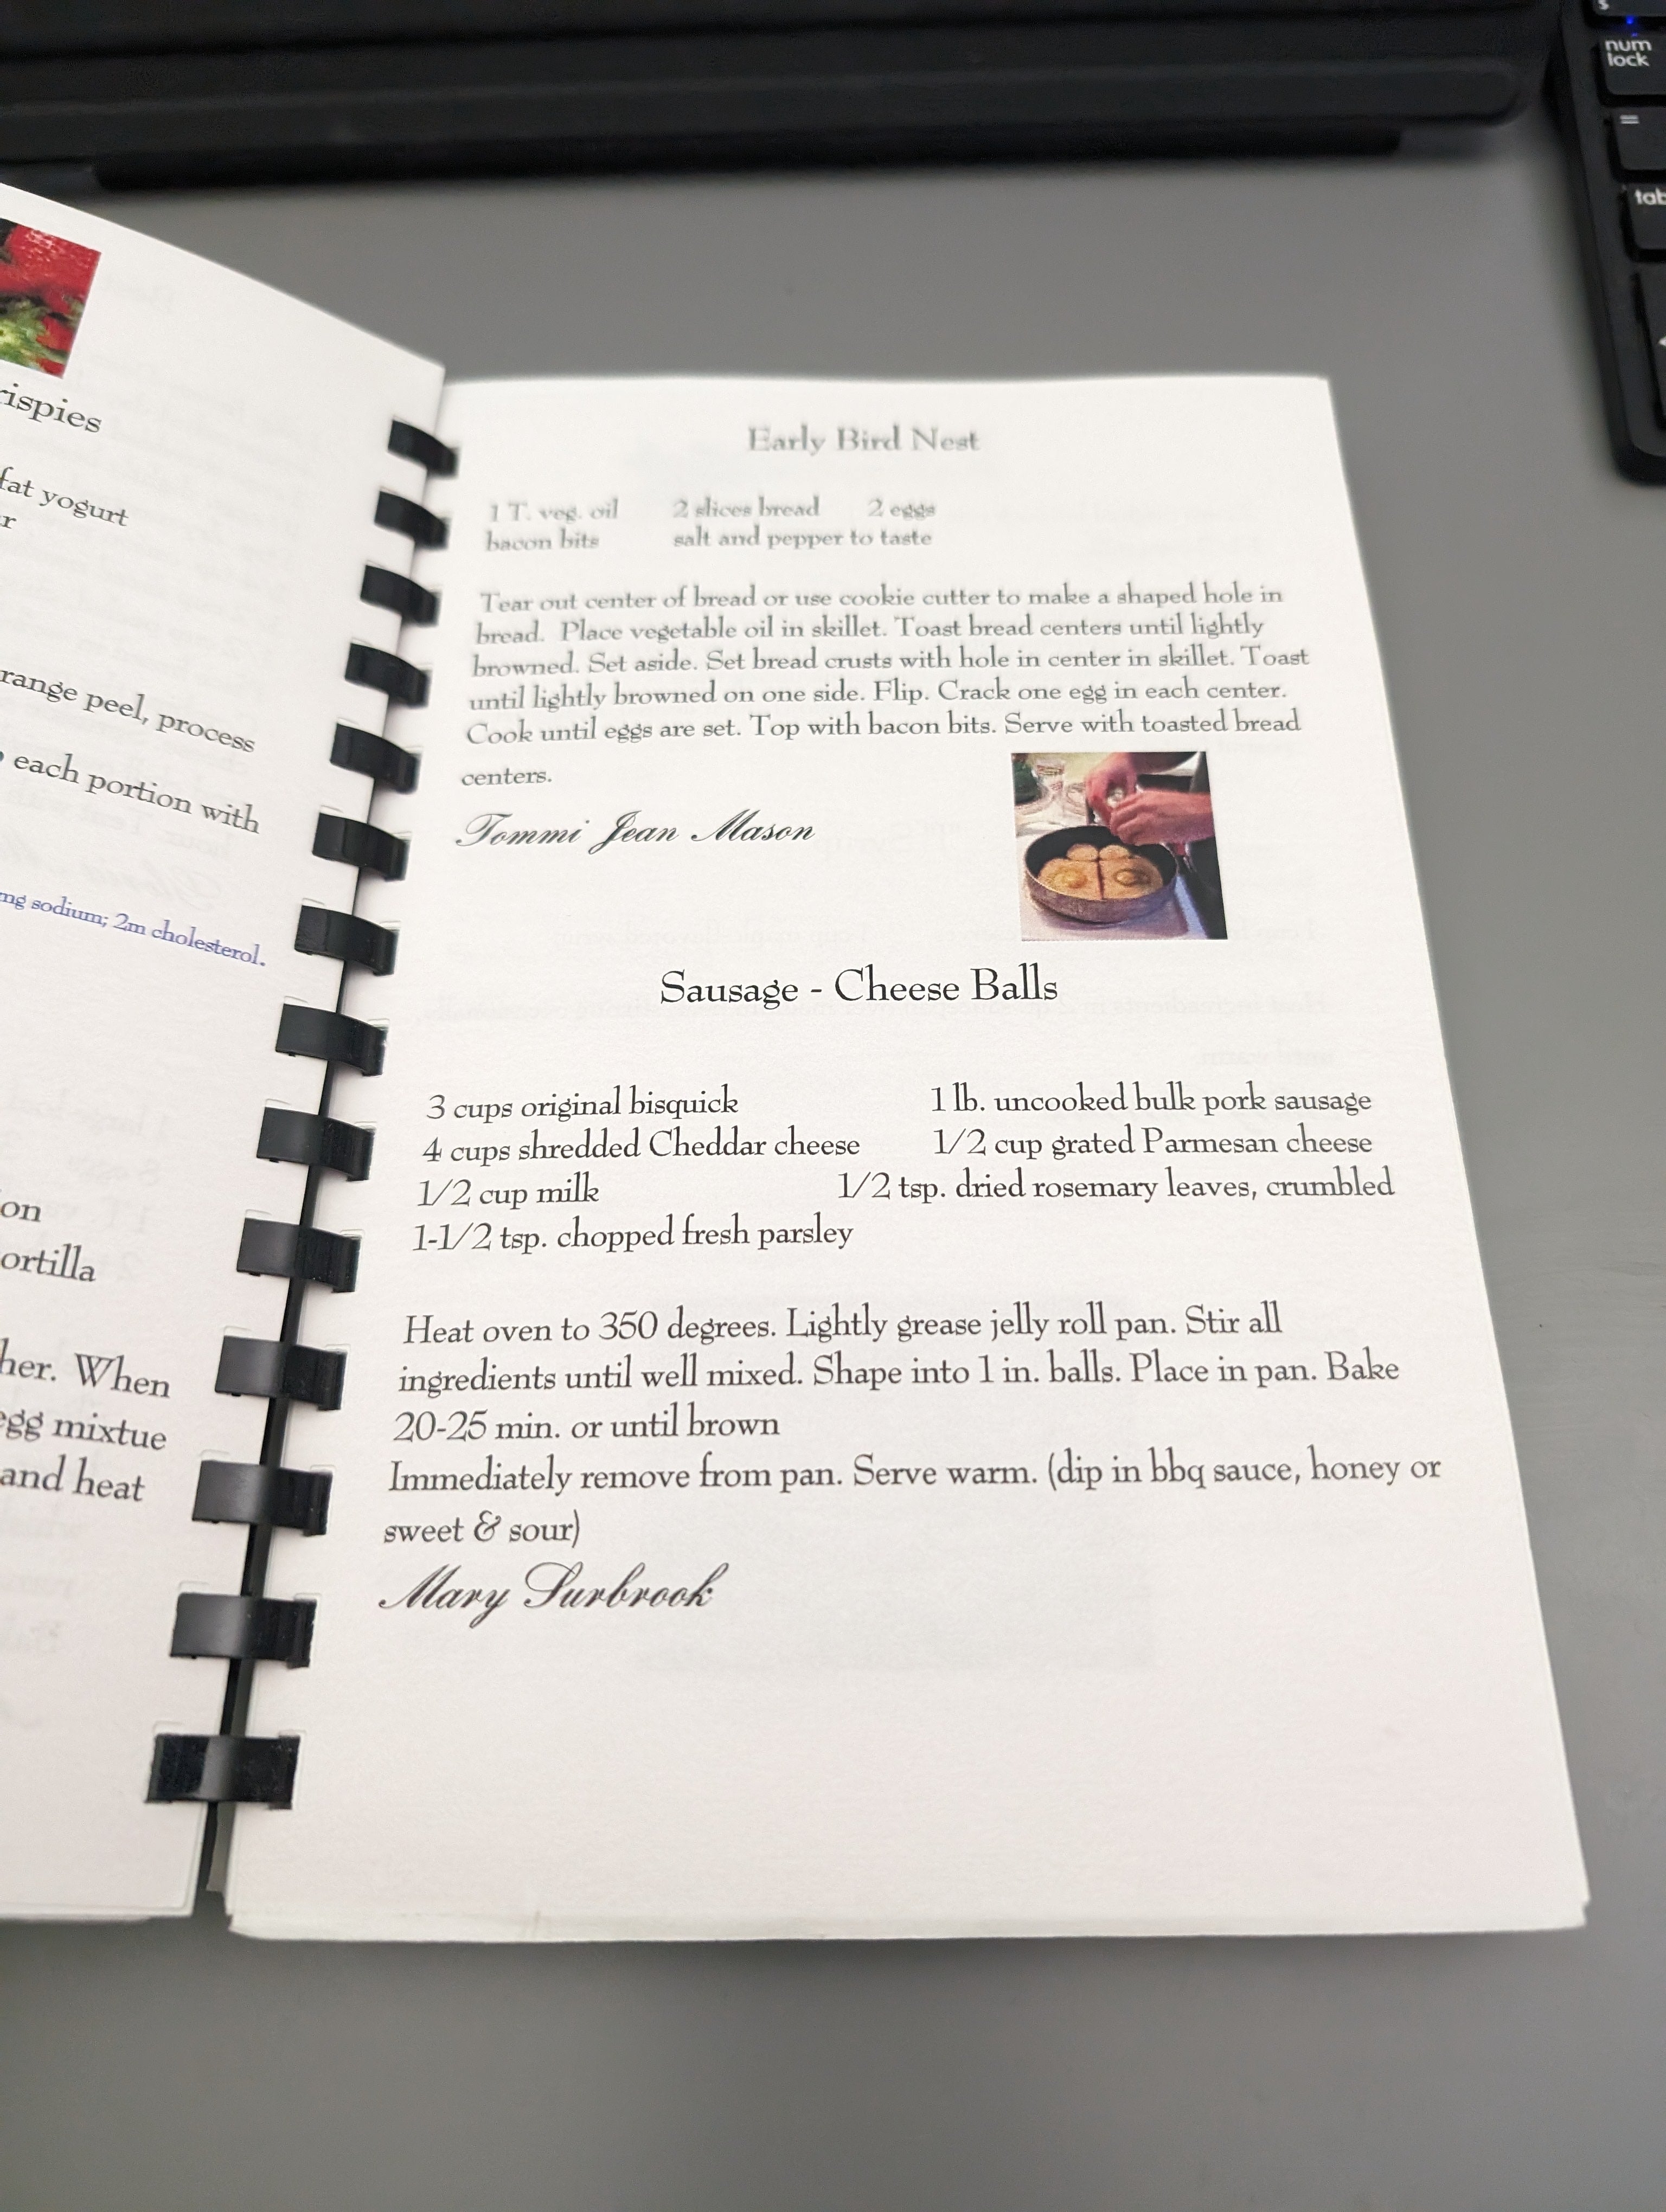 rispies
fat yogurt
r
range peel, process
each portion with
mg sodium; 2m cholesterol.
on
ortilla
her. When
egg mixtue
and heat
Early Bird Nest
1 T. veg. oil 2 slices bread 2 eggs
bacon bits salt and pepper to taste
Tear out center of bread or use cookie cutter to make a shaped hole in
bread. Place vegetable oil in skillet. Toast bread centers until lightly
browned. Set aside. Set bread crusts with hole in center in skillet. Toast
until lightly browned on one side. Flip. Crack one egg in each center.
Cook until eggs are set. Top with bacon bits. Serve with toasted bread
centers.
Tommi Jean Mason
Sausage - Cheese Balls
3 cups original bisquick 1 lb. uncooked bulk pork sausage
4 cups shredded Cheddar cheese 1/2 cup grated Parmesan cheese
1/2 cup milk 1/2 tsp. dried rosemary leaves, crumbled
1-1/2 tsp. chopped fresh parsley
Heat oven to 350 degrees. Lightly grease jelly roll pan. Stir all
ingredients until well mixed. Shape into 1 in. balls. Place in pan. Bake
20-25 min. or until brown
Immediately remove from pan. Serve warm. (dip in bbq sauce, honey or
sweet & sour)
Mary Surbrook
$
num
lock
=
tab